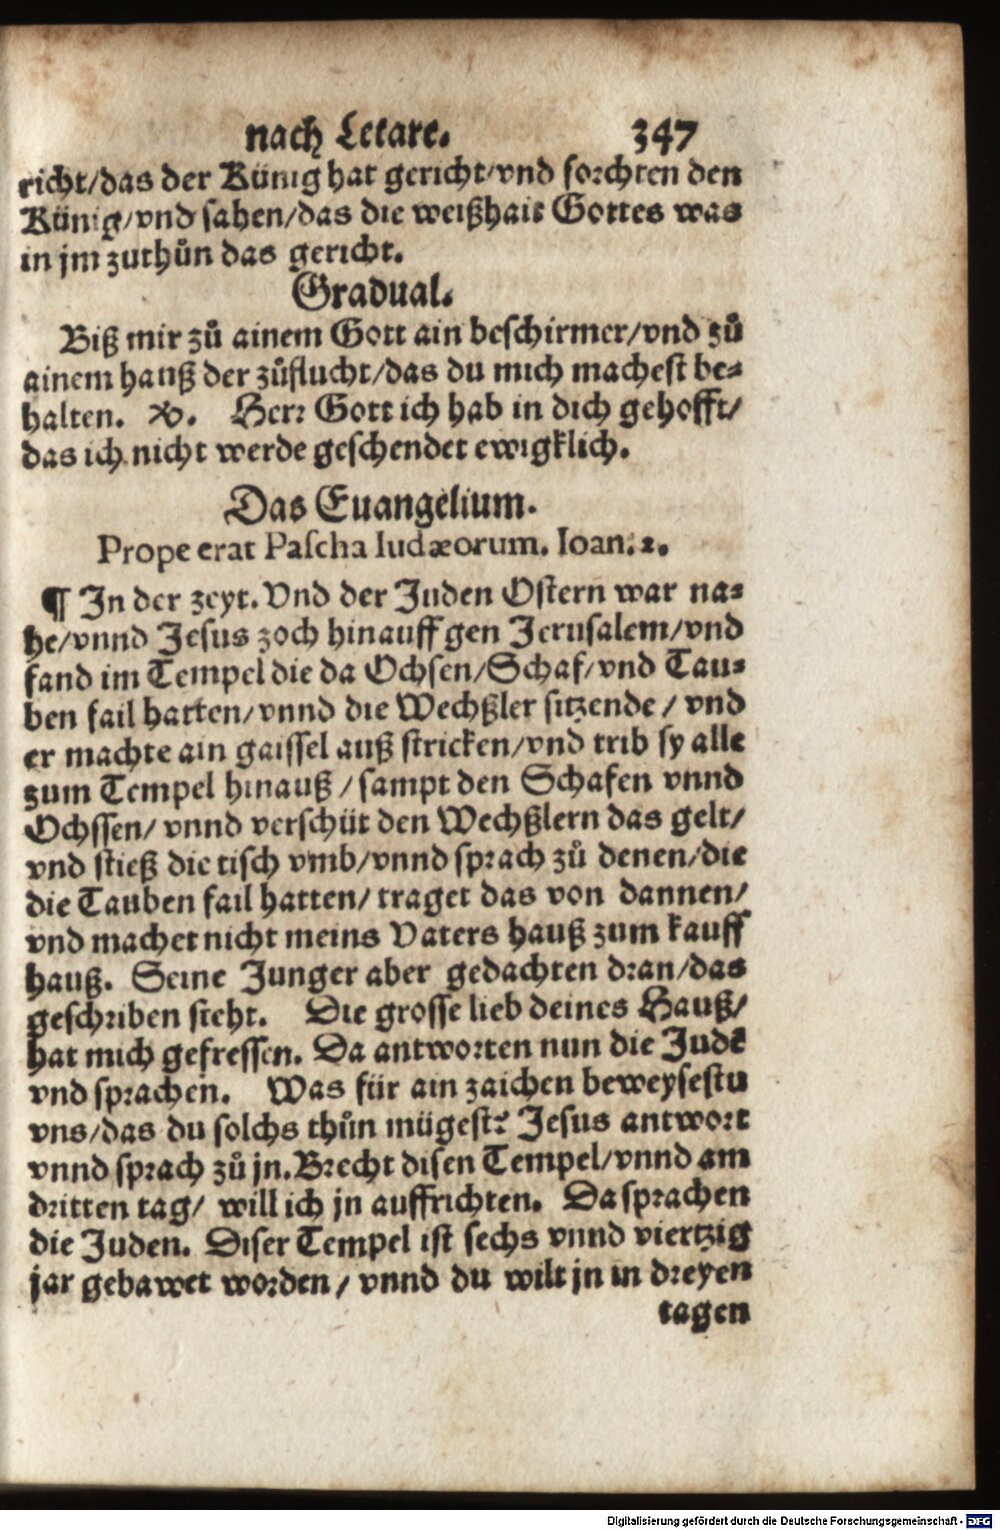 nach Letare. 347
richt/das der Künig hat gericht/vnd forchten den
Künig/vnd sahen/das die weißhait Gottes was
in jm zuthůn das gericht.
Gradual.
Biß mir zů ainem Gott ain beschirmer/vnd zů
ainem hauß der zůflucht/das du mich machest be-
halten. ℣. Herr Gott ich hab in dich gehofft/
das ich nicht werde geschendet ewigklich.
Das Euangelium.
Prope erat Pascha Iudæorum. Ioan. 2.
¶ In der zeyt. Vnd der Juden Ostern war na-
he/vnnd Jesus zoch hinauff gen Jerusalem/vnd
fand im Tempel die da Ochsen/Schaf/vnd Tau-
ben fail hatten/vnnd die Wechßler sitzende/vnd
er machte ain gaissel auß stricken/vnd trib sy alle
zum Tempel hinauß/sampt den Schafen vnnd
Ochssen/vnnd verschüt den Wechßlern das gelt/
vnd stieß die tisch vmb/vnnd sprach zů denen/die
die Tauben fail hatten/traget das von dannen/
vnd machet nicht meins Vaters hauß zum kauff
hauß. Seine Junger aber gedachten dran/das
geschriben steht. Die grosse lieb deines Hauß/
hat mich gefressen. Da antworten nun die Judē
vnd sprachen. Was für ain zaichen beweysestu
vns/das du solchs thůn mügest? Jesus antwort
vnnd sprach zů jn. Brecht disen Tempel/vnnd am
dritten tag/ will ich jn auffrichten. Da sprachen
die Juden. Diser Tempel ist sechs vnnd viertzig
jar gebawet worden/vnnd du wilt jn in dreyen
tagen
Digitalisierung gefördert durch die Deutsche Forschungsgemeinschaft - DFG